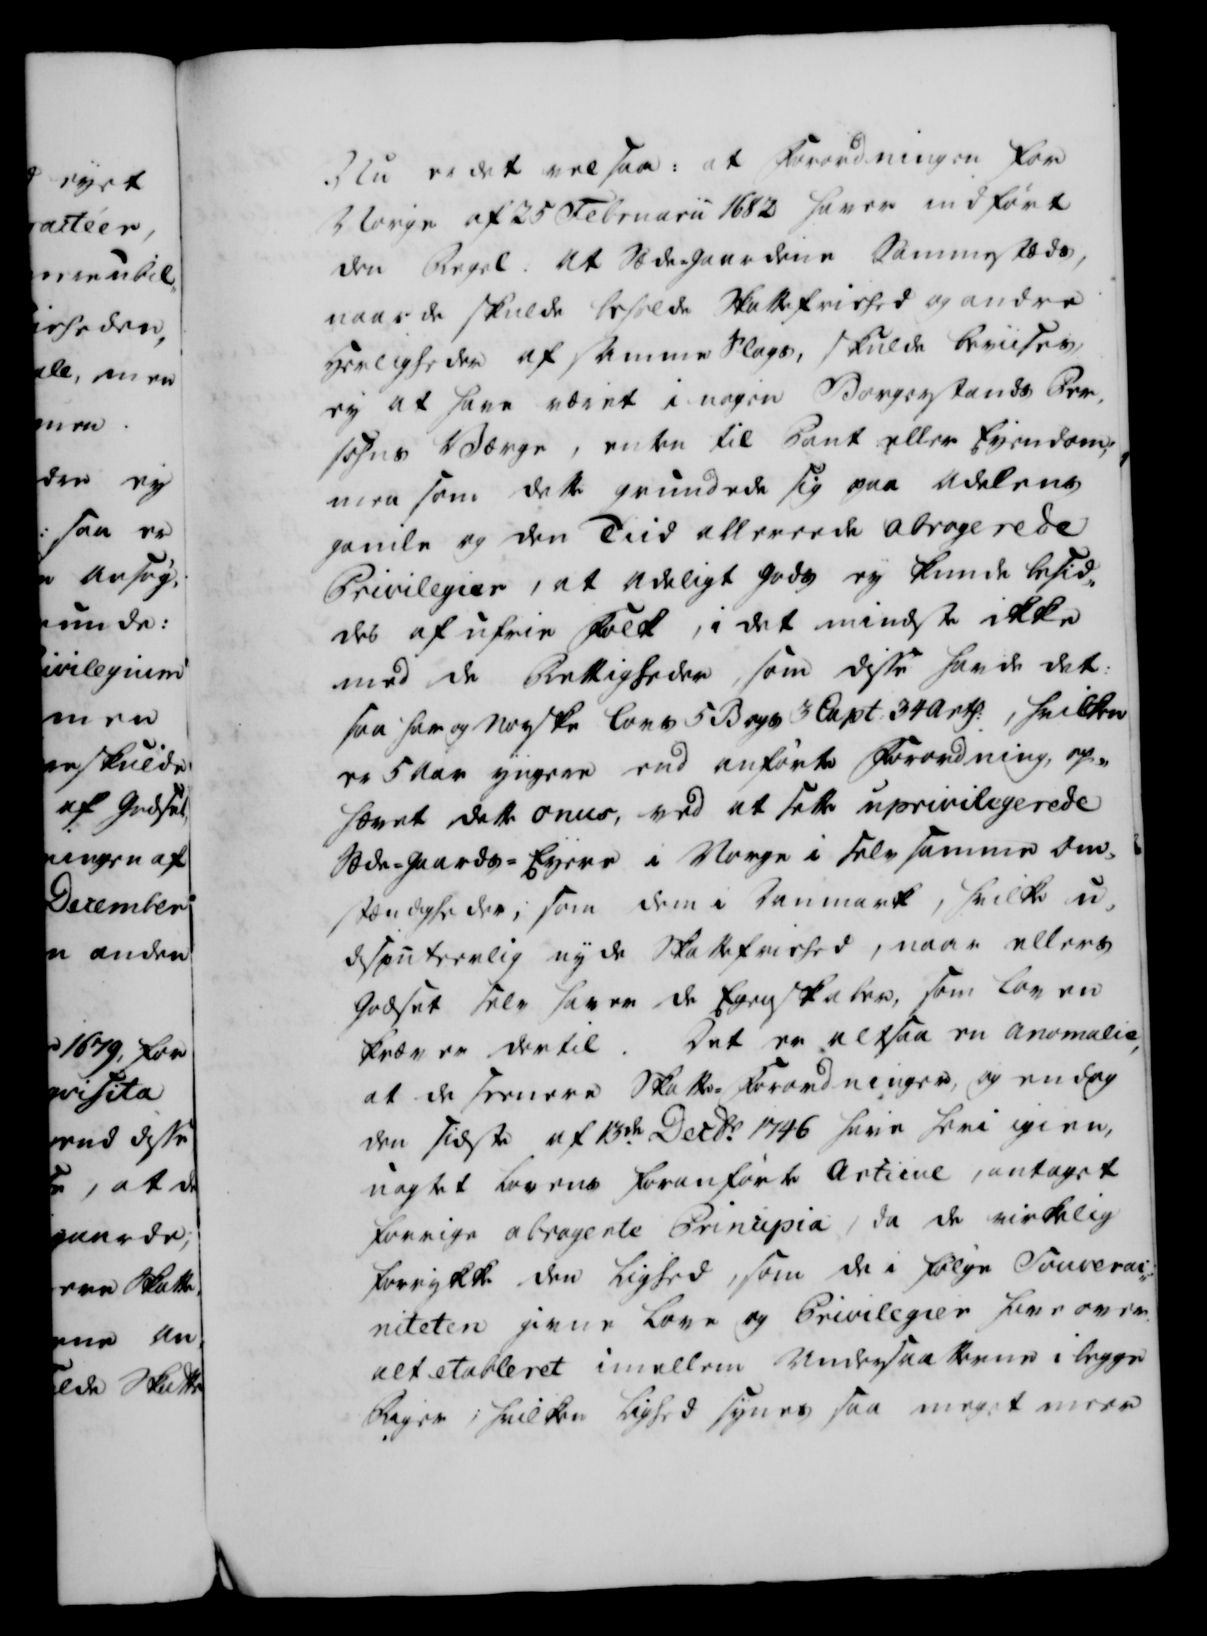 eyet
ille, men
men.
den ey
: saa er
Ansøg,
unde:
ivilegium
men
reskulde
af Godset
ningen af
December
n anden
1679, for
qvisita
end disse
, at de
gaarde,
ere Skatte,
rne An,
ulde Skatte
Nu er det vel saa: at Forordningen for
Norge af 25 Februarii 1682 haver indført
den Regel. At Sæde-Gaardene sammestæds,
naar de skulde beholde Skattefrihed og andre
Herligheder af samme Slags, skulde beviises
ey at have været i nogen Borgerstands Per,
sohns Værge, enten til Pant eller Eyendom;
men som dette grundede sig paa Adelens
gamle og den Tiid allereede abrogerede
Privilegier, at adeligt Gods ey kunde besid„
des af ufrie Folk, i det mindste ikke
med de Rettigheder, som disse havde det:
saa har og Norske Lovs 5 Bogs 3 Capt. 34 Art:, hvilken
er 5 Aar yngere end anførte Forordning, op„
hævet dette onus, ved at sette uprivilegerede
Sæde-Gaards-Eyere i Norge i selv samme Om„
stændigheder, som dem i Danmark, hvilke u„
disputeerlig nyde Skattefrihed, naar ellers
Godset selv haver de Egenskaber, som Loven
kræver dertil. Det er altsaa en Anomalie,
at de seenere Skatte-Forordninger, og endog
den sidste af 13de Decbr 1746 have heri igien,
uagtet Lovens foranførte Articul, antaget
forrige abrogerte Principia, da de virkelig
forrykke den Lighed, som de i følge Souverai„
niteten givne Love og Privilegier have over
alt etableret imellem Undersaatterne i begge
Riger; hvilken Lighed synes saa meget meer